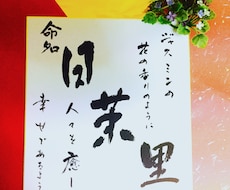 ジャスミンの
花の香りのように
命名
日茉里
人々を癒し
幸せであるよう